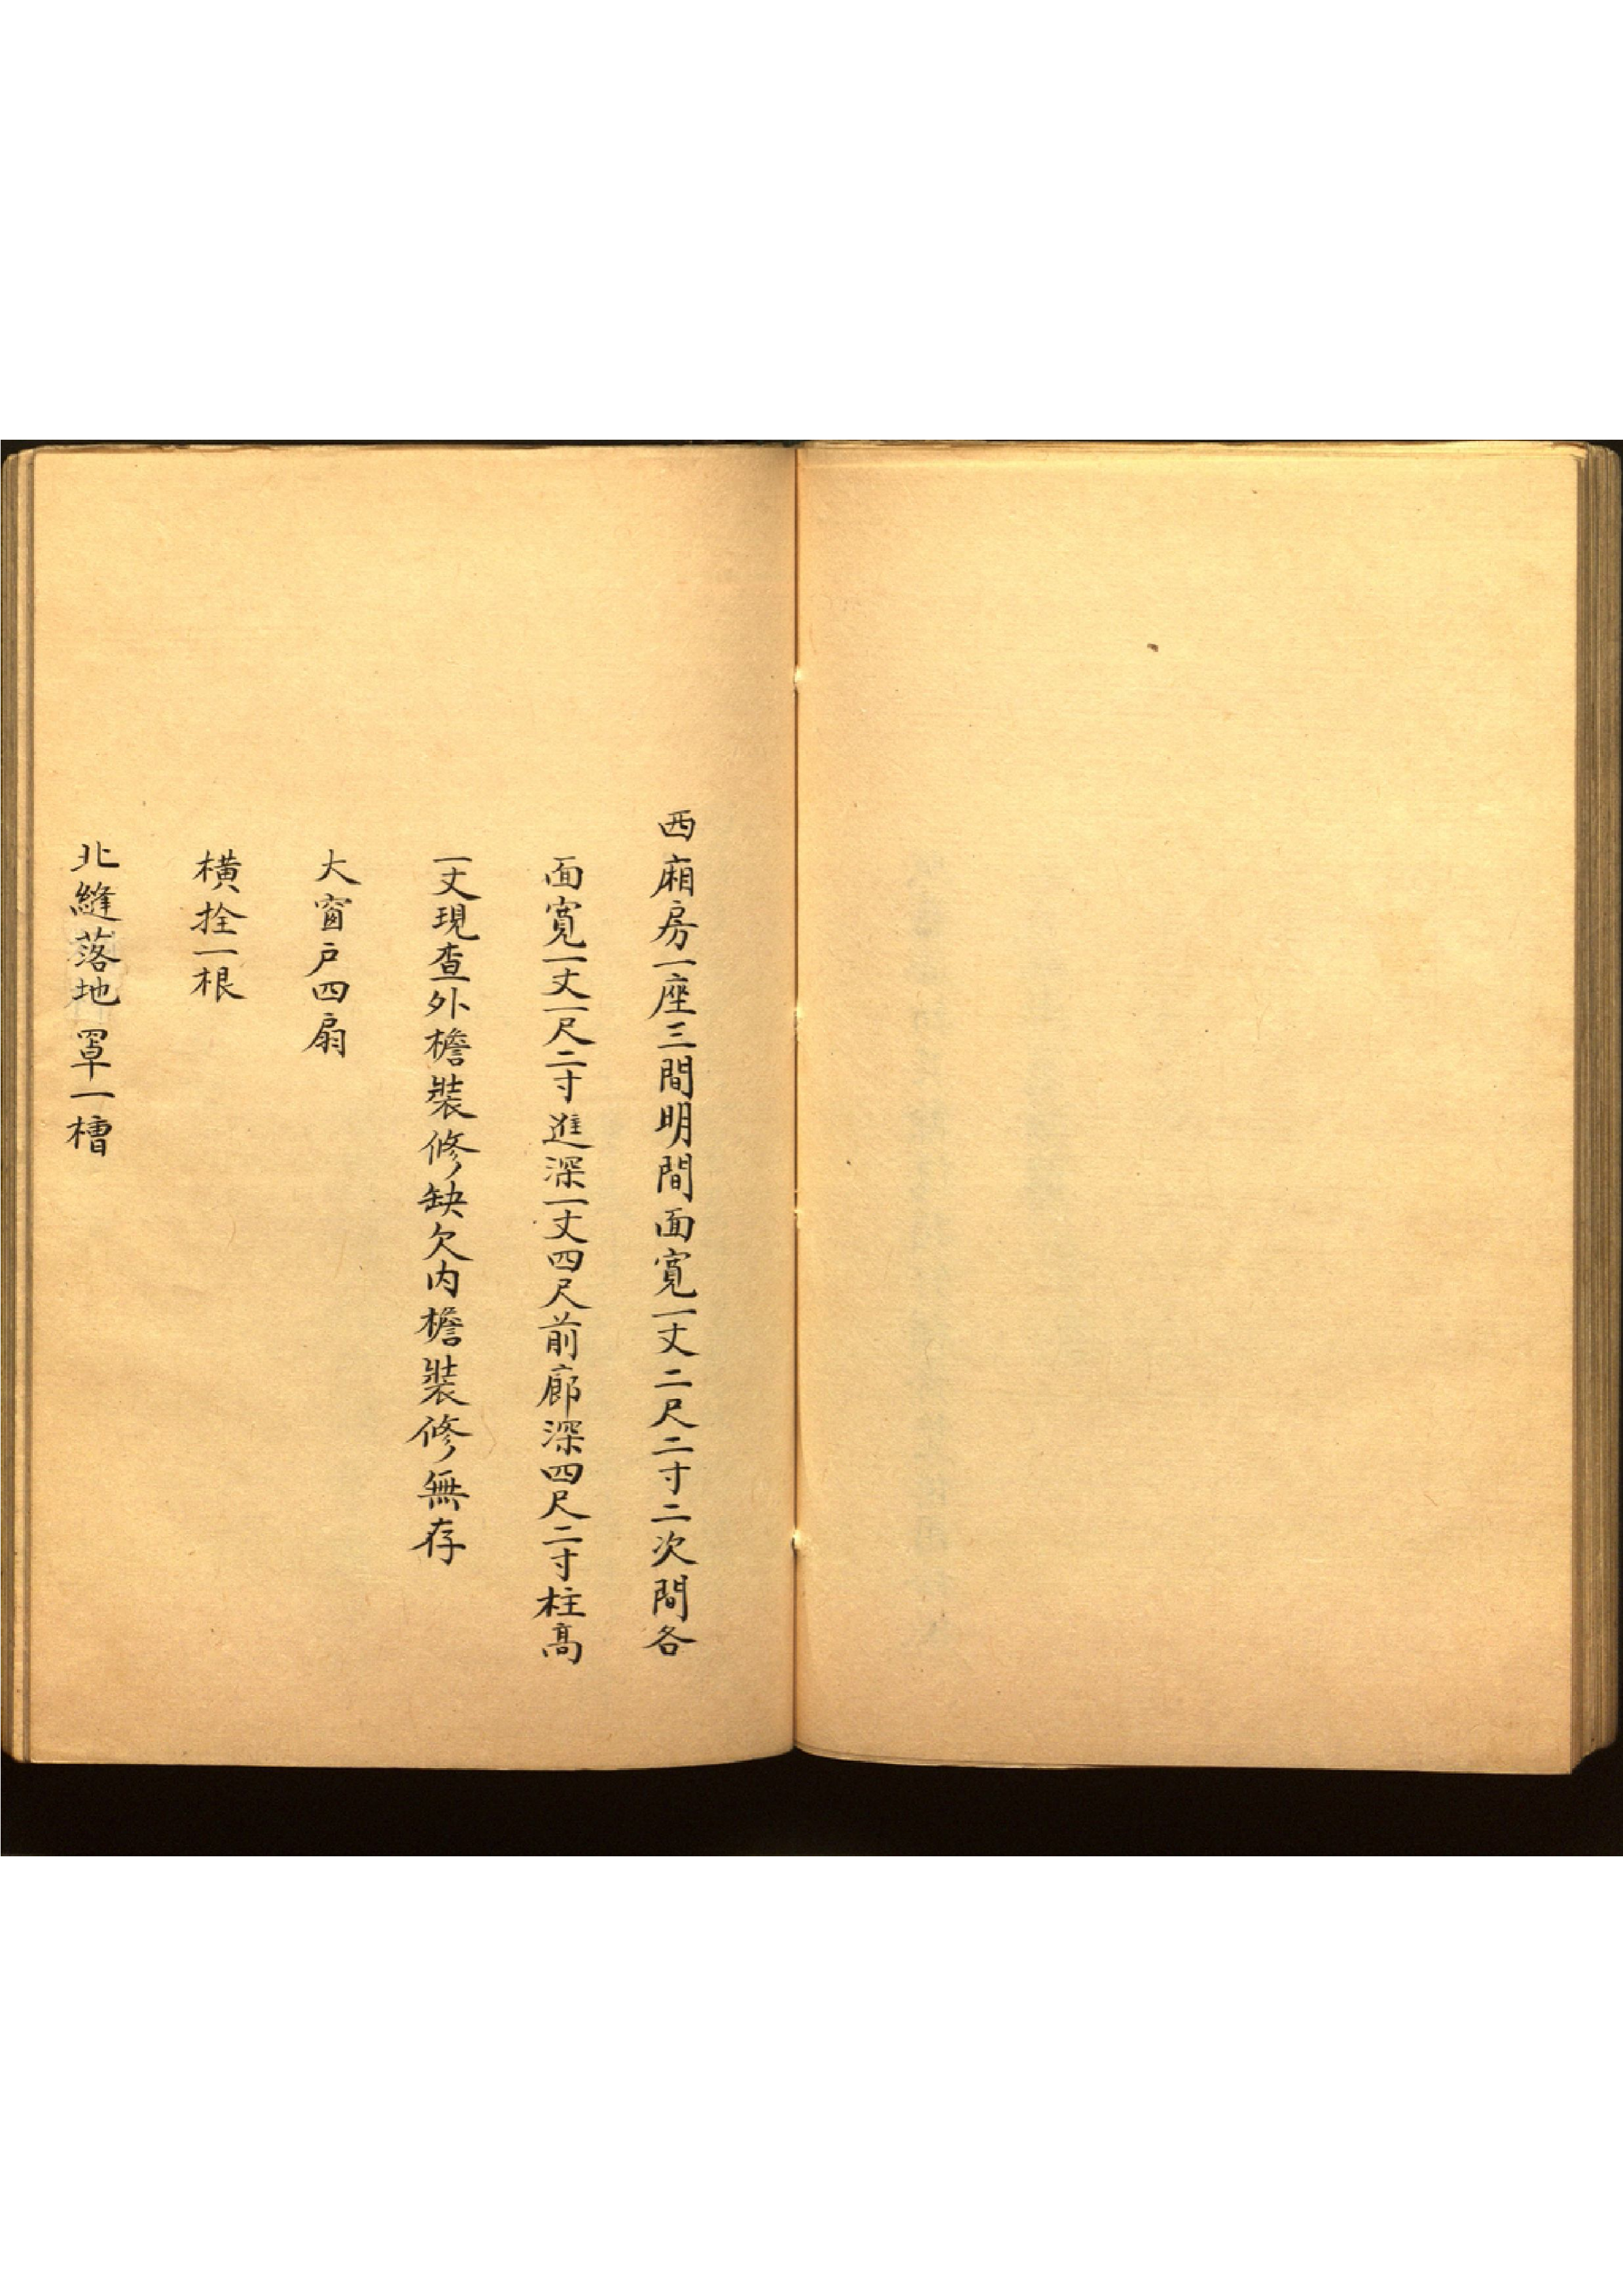 西廂房一座三間明間面寬一丈二尺二寸二次間各
面寬一丈一尺二寸進深一丈四尺前廊深四尺二寸柱高
一丈現查外檐裝修缺欠內檐裝修無存
大窗户四扇
橫拴一根
北縫落地罩一槽